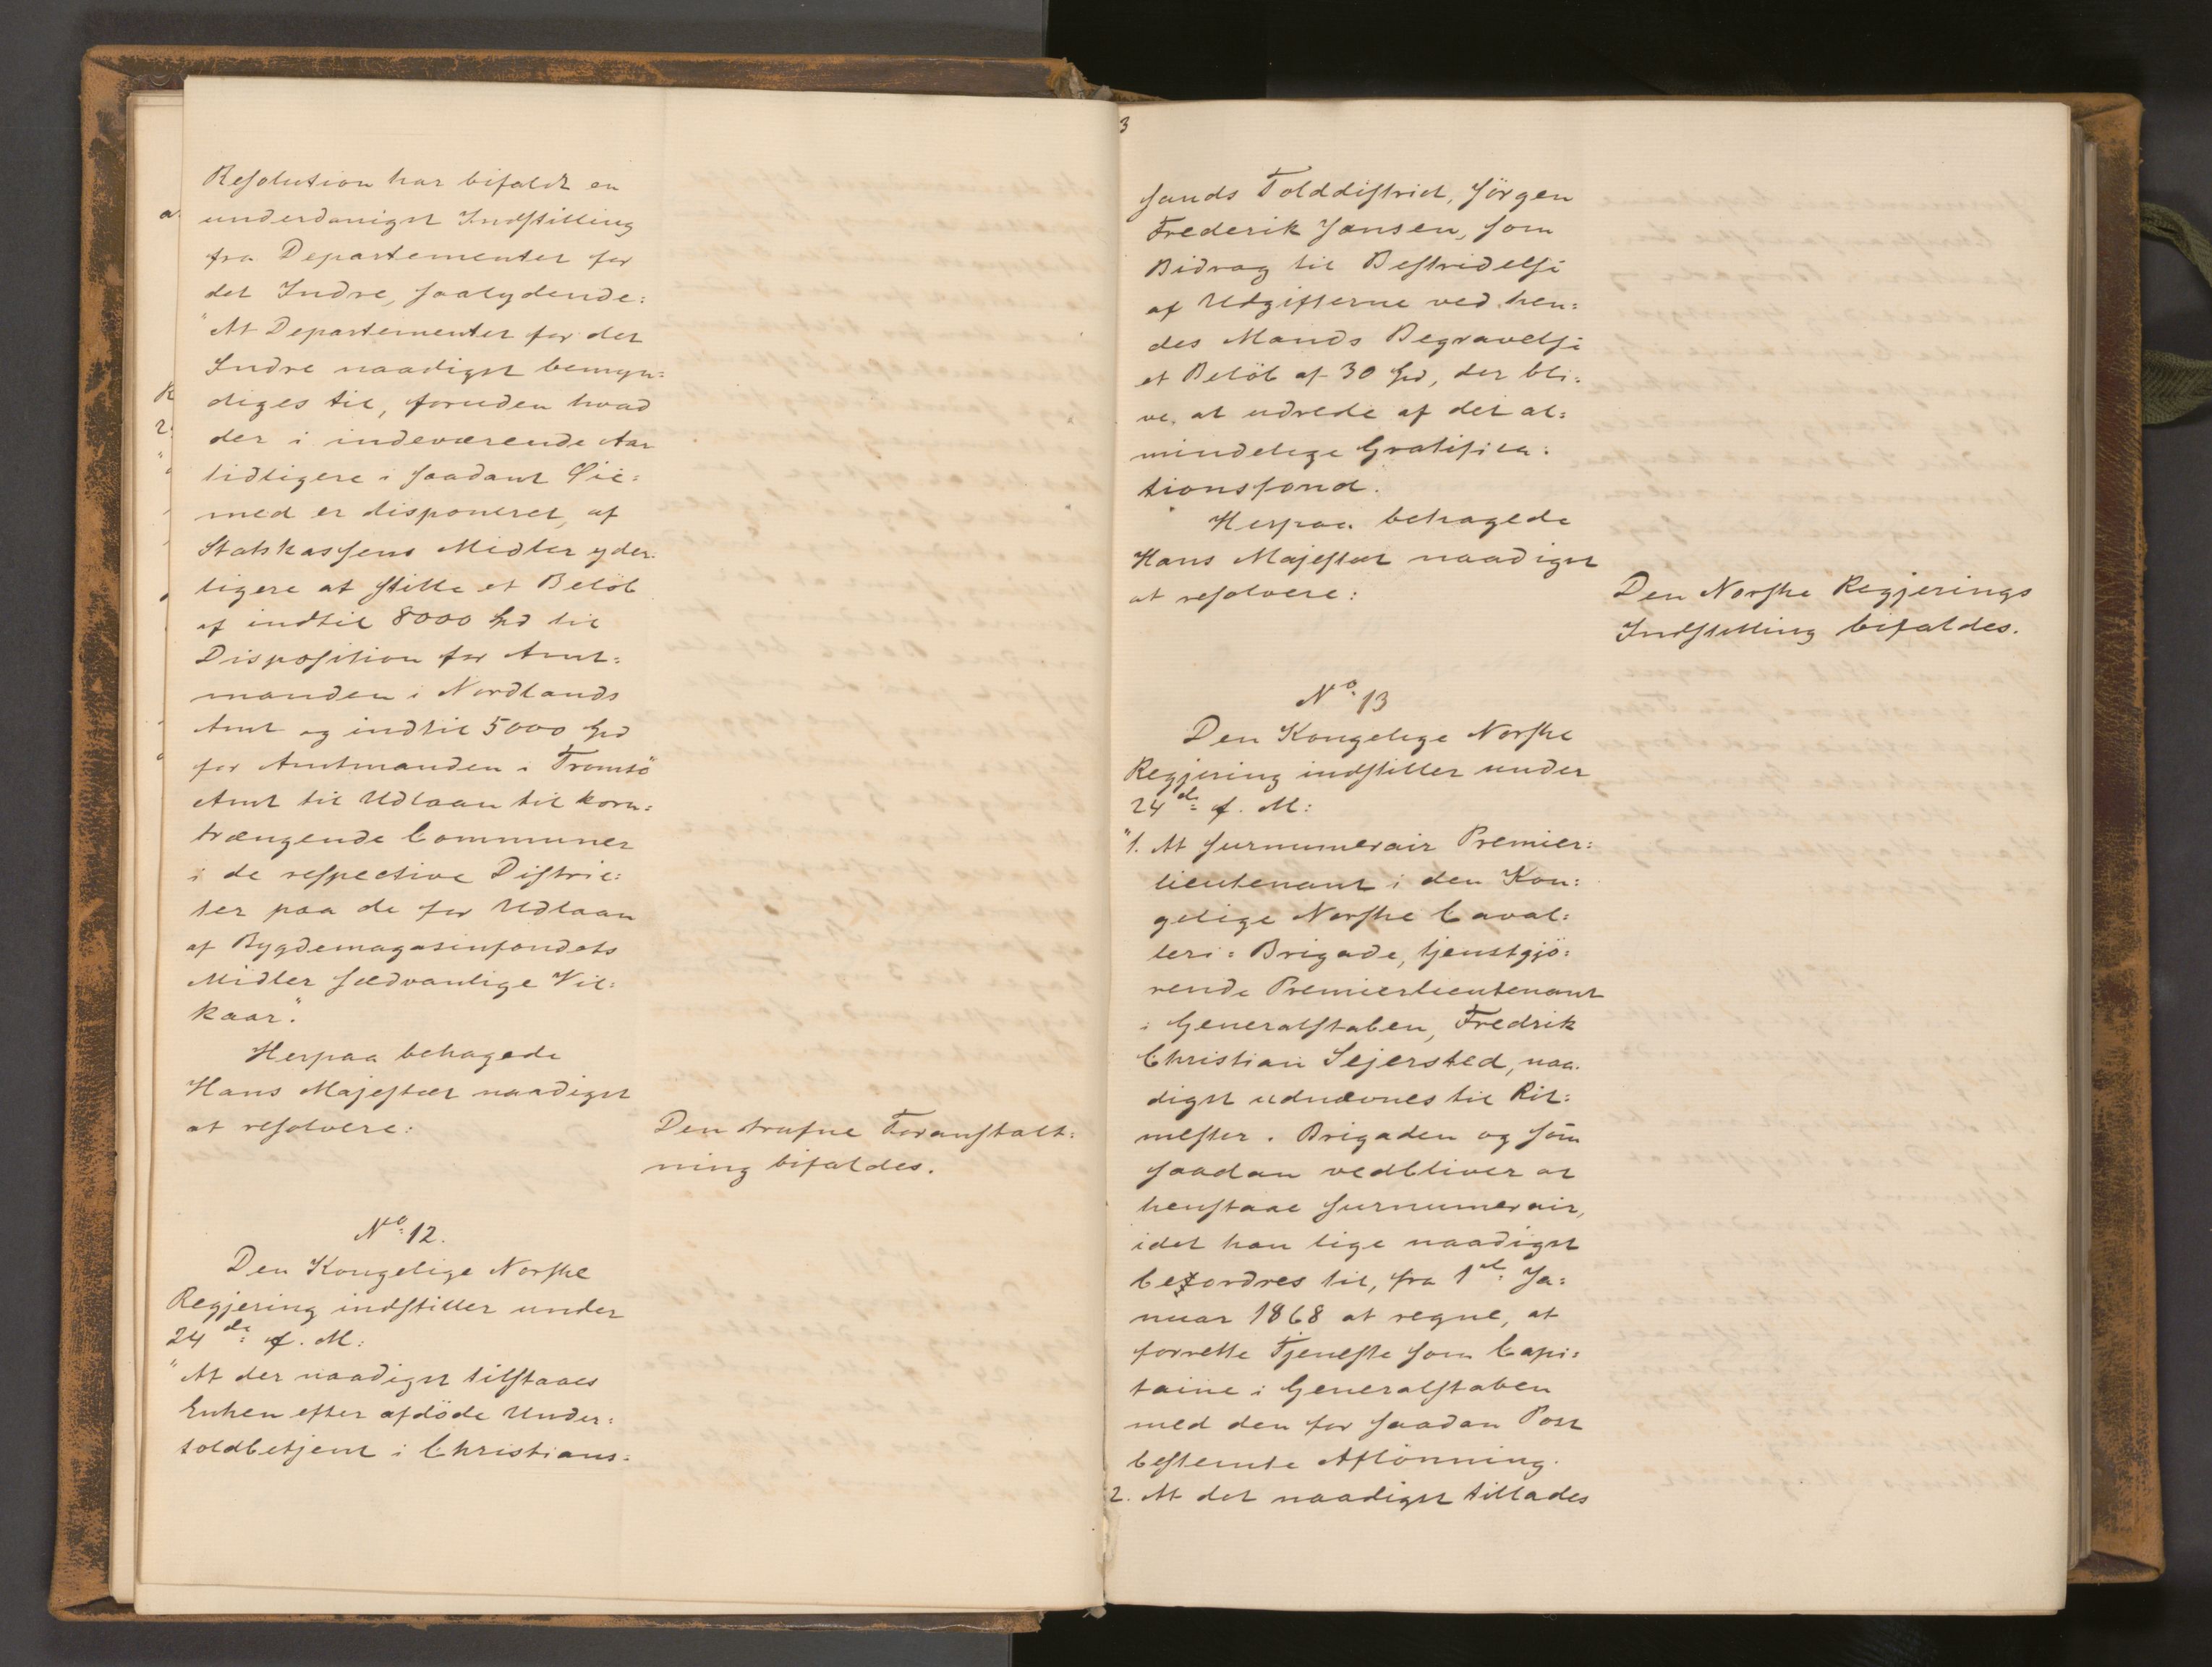 Resolution har bifaldt en
underdanigst Indstilling
fra Departementet for
det Indre, saalydende:
"At Departementet for det
Indre naadigst bemyn=
diges til, foruden hvad
der i indeværende Aar
tidligere i saadant Øie=
med er disponeret, af
Statskassens Midler yder=
ligere at stille et Beløb
af indtil 8000 Spd til
Disposition for Amt=
manden i Nordlands
Amt og indtil 5000 Spd
for Amtmanden i Tromsö
Amt til Udlaan til korn=
trængende Communer
i de respective Distric=
ter paa de for Udlaan
af Bygdemagasinfondets
Midler sædvanlige Vil=
kaar."
Herpaa behagede
Hans Majestæt naadigst
at resolvere:
Den trufne Foranstalt=
ning bifaldes.
No 12.
Den Kongelige Norske
Regjering indstiller under
24de f. M:
"At der naadigst tilstaaes
Enken efter afdöde Under=
toldbetjent i Christians=
3
sands Tolddistrict, Jörgen
Frederik Jansen, som
Bidrag til Bestridelse
af Udgifterne ved hen=
des Mands Begravelse
et Belöb af 30 Spd, der bli=
ve at udrede af det al=
mindelige Gratifica=
tionsfond.
Herpaa behagede
Hans Majestæt naadigst
at resolvere:
Den Norske Regjerings
Indstilling bifaldes.
No 13
Den Kongelige Norske
Regjering indstiller under
24de f. M:
"1. At surnumerair Premier=
lieutenant i den Kon=
gelige Norske Caval=
leri=Brigade, tjenstgjö=
rende Premierlieutenant
i Generalstaben, Fredrik
Christian Sejersted, naa=
digst udnævnes til Rit=
mester i Brigaden og som
saadan vedbliver at
henstaae surnumerair,
idet han lige naadigst
befordres til, fra 1st Ja=
nuar 1868 at regne, at
forrette Tjeneste som Capi=
taine i Generalstaben
med den for saadan Post
bestemte Aflönning.
2. At det naadigst tillades